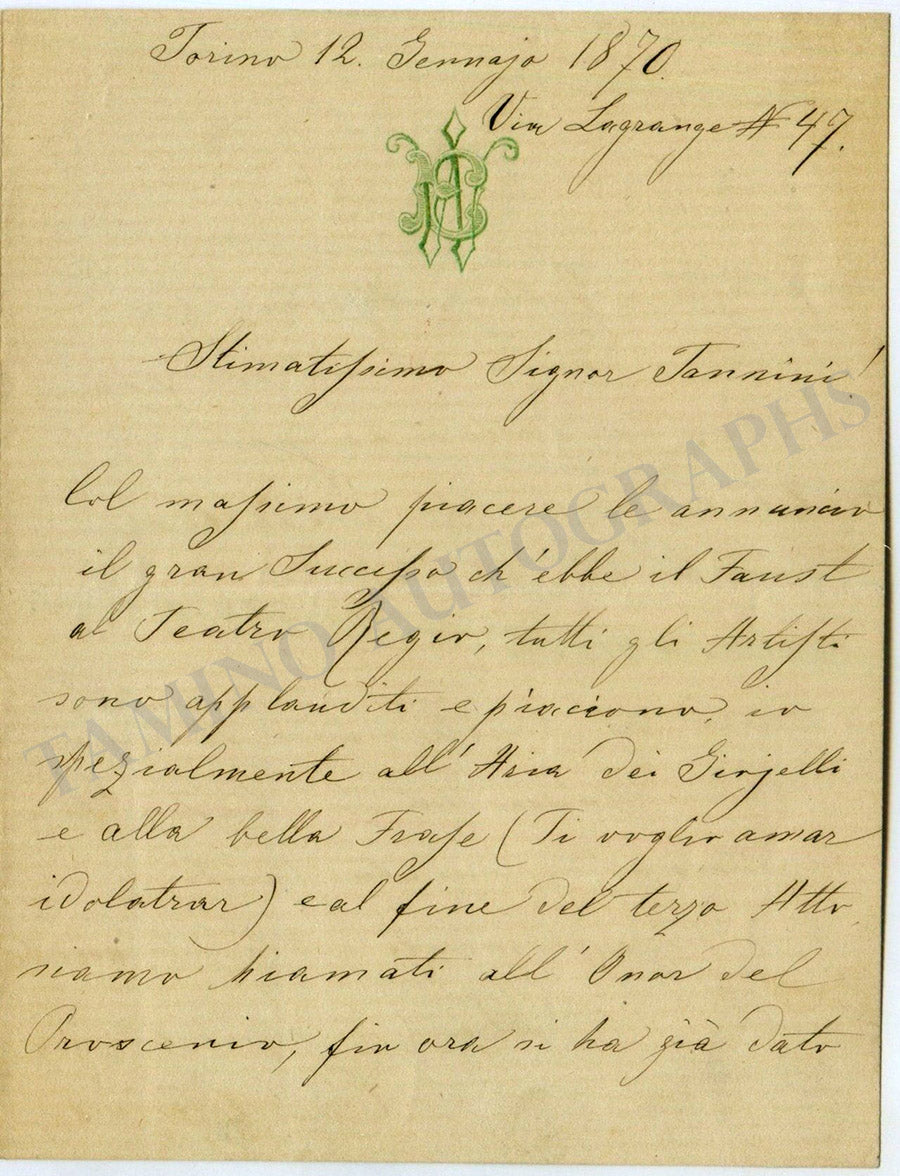 Torino 12. Gennajo 1870.
Via Lagrange N 47.
Stimatissimo Signor Vannini!
Col massimo piacere le annuncio
il gran Successo ch'ebbe il Faust
al Teatro Regio, tutti gli Artisti
sono applauditi e piaciono, io
spezialmente all' Aria dei Giojelli
e alla bella Frase (Ti voglio amar
idolatrar) e al fine del terzo Atto
siamo hiamati all' Onor del
Proscenio, fin ora si ha già dato
TAMINO AUTOGRAPHS